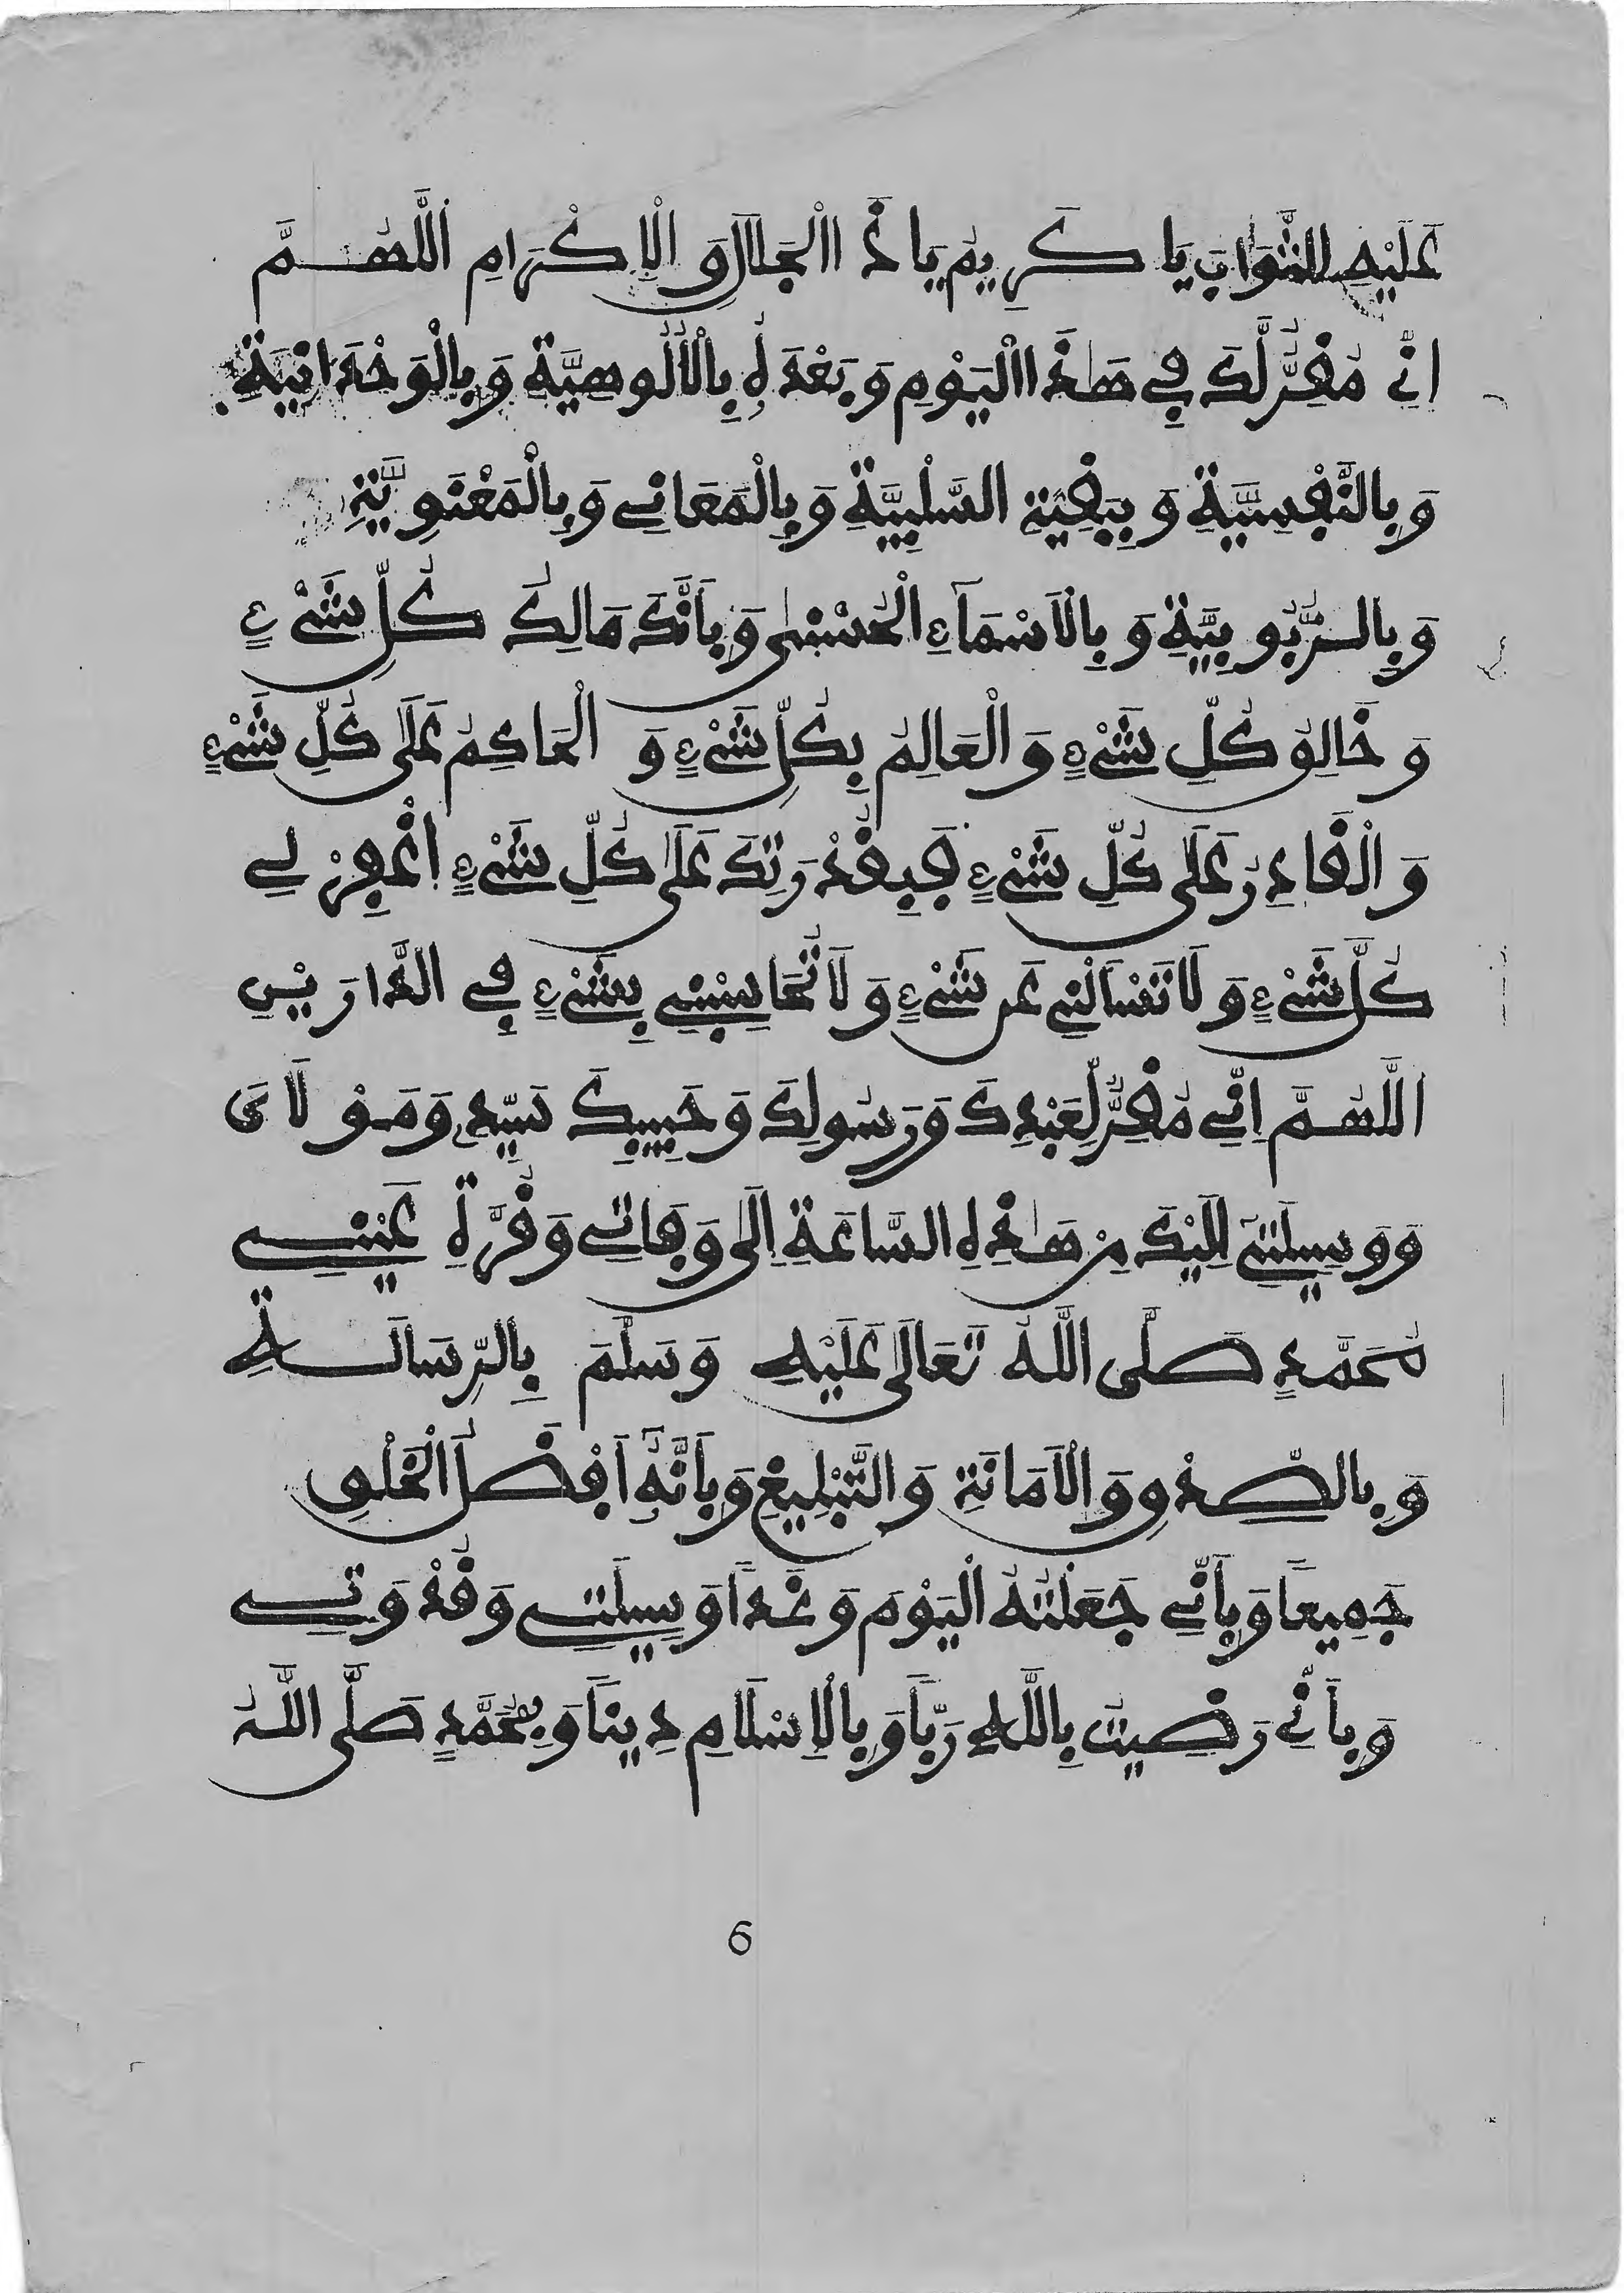 عَلَيْهِ الثَّوَابَ يَا كَرِيمُ يَا ذَا الْجَلَالِ وَالْإِكْرَامِ اللَّهُمَّ
إِنِّي مُقِرٌّ لَكَ فِي هَٰذَا الْيَوْمِ وَبَعْدَهُ بِالْأُلُوهِيَّةِ وَبِالْوَحْدَانِيَةِ
وَبِالنَّفْسِيَّةِ وَبِبَقِيَّةِ السَّلْبِيَّةِ وَبِالْمَعَانِي وَبِالْمَعْنَوِيَّةِ
وَبِالرُّبُوبِيَّةِ وَبِالْأَسْمَاءِ الْحُسْنَىٰ وَبِأَنَّكَ مَالِكُ كُلِّ شَيْءٍ
وَخَالِقُ كُلِّ شَيْءٍ وَالْعَالِمُ بِكُلِّ شَيْءٍ وَالْحَاكِمُ عَلَىٰ كُلِّ شَيْءٍ
وَالْقَادِرُ عَلَىٰ كُلِّ شَيْءٍ فَبِقُدْرَتِكَ عَلَىٰ كُلِّ شَيْءٍ اغْفِرْ لِي
كُلَّ شَيْءٍ وَلَا تَسْأَلْنِي عَن شَيْءٍ وَلَا تُحَاسِبْنِي بِشَيْءٍ فِي الدَّارَيْنِ
اللَّهُمَّ إِنِّي مُقِرٌّ لِعَبْدِكَ وَرَسُولِكَ وَحَبِيبِكَ سَيِّدِي وَمَوْلَايَ
وَوَسِيلَتِي إِلَيْكَ مِن هَٰذِهِ السَّاعَةِ إِلَىٰ وَفَاتِي وَقُرَّةِ عَيْنِي
مُحَمَّدٍ صَلَّى اللَّهُ تَعَالَىٰ عَلَيْهِ وَسَلَّمَ بِالرِّسَالَةِ
وَبِالصِّدْقِ وَالْأَمَانَةِ وَالتَّبْلِيغِ وَبِأَنَّهُ أَفْضَلُ الْخَلْقِ
جَمِيعًا وَبِأَنِّي جَعَلْتُهُ الْيَوْمَ وَغَدًا وَسِيلَتِي وَقُدْوَتِي
وَبِأَنِّي رَضِيتُ بِاللَّهِ رَبًّا وَبِالْإِسْلَامِ دِينًا وَبِمُحَمَّدٍ صَلَّى اللَّهُ
6